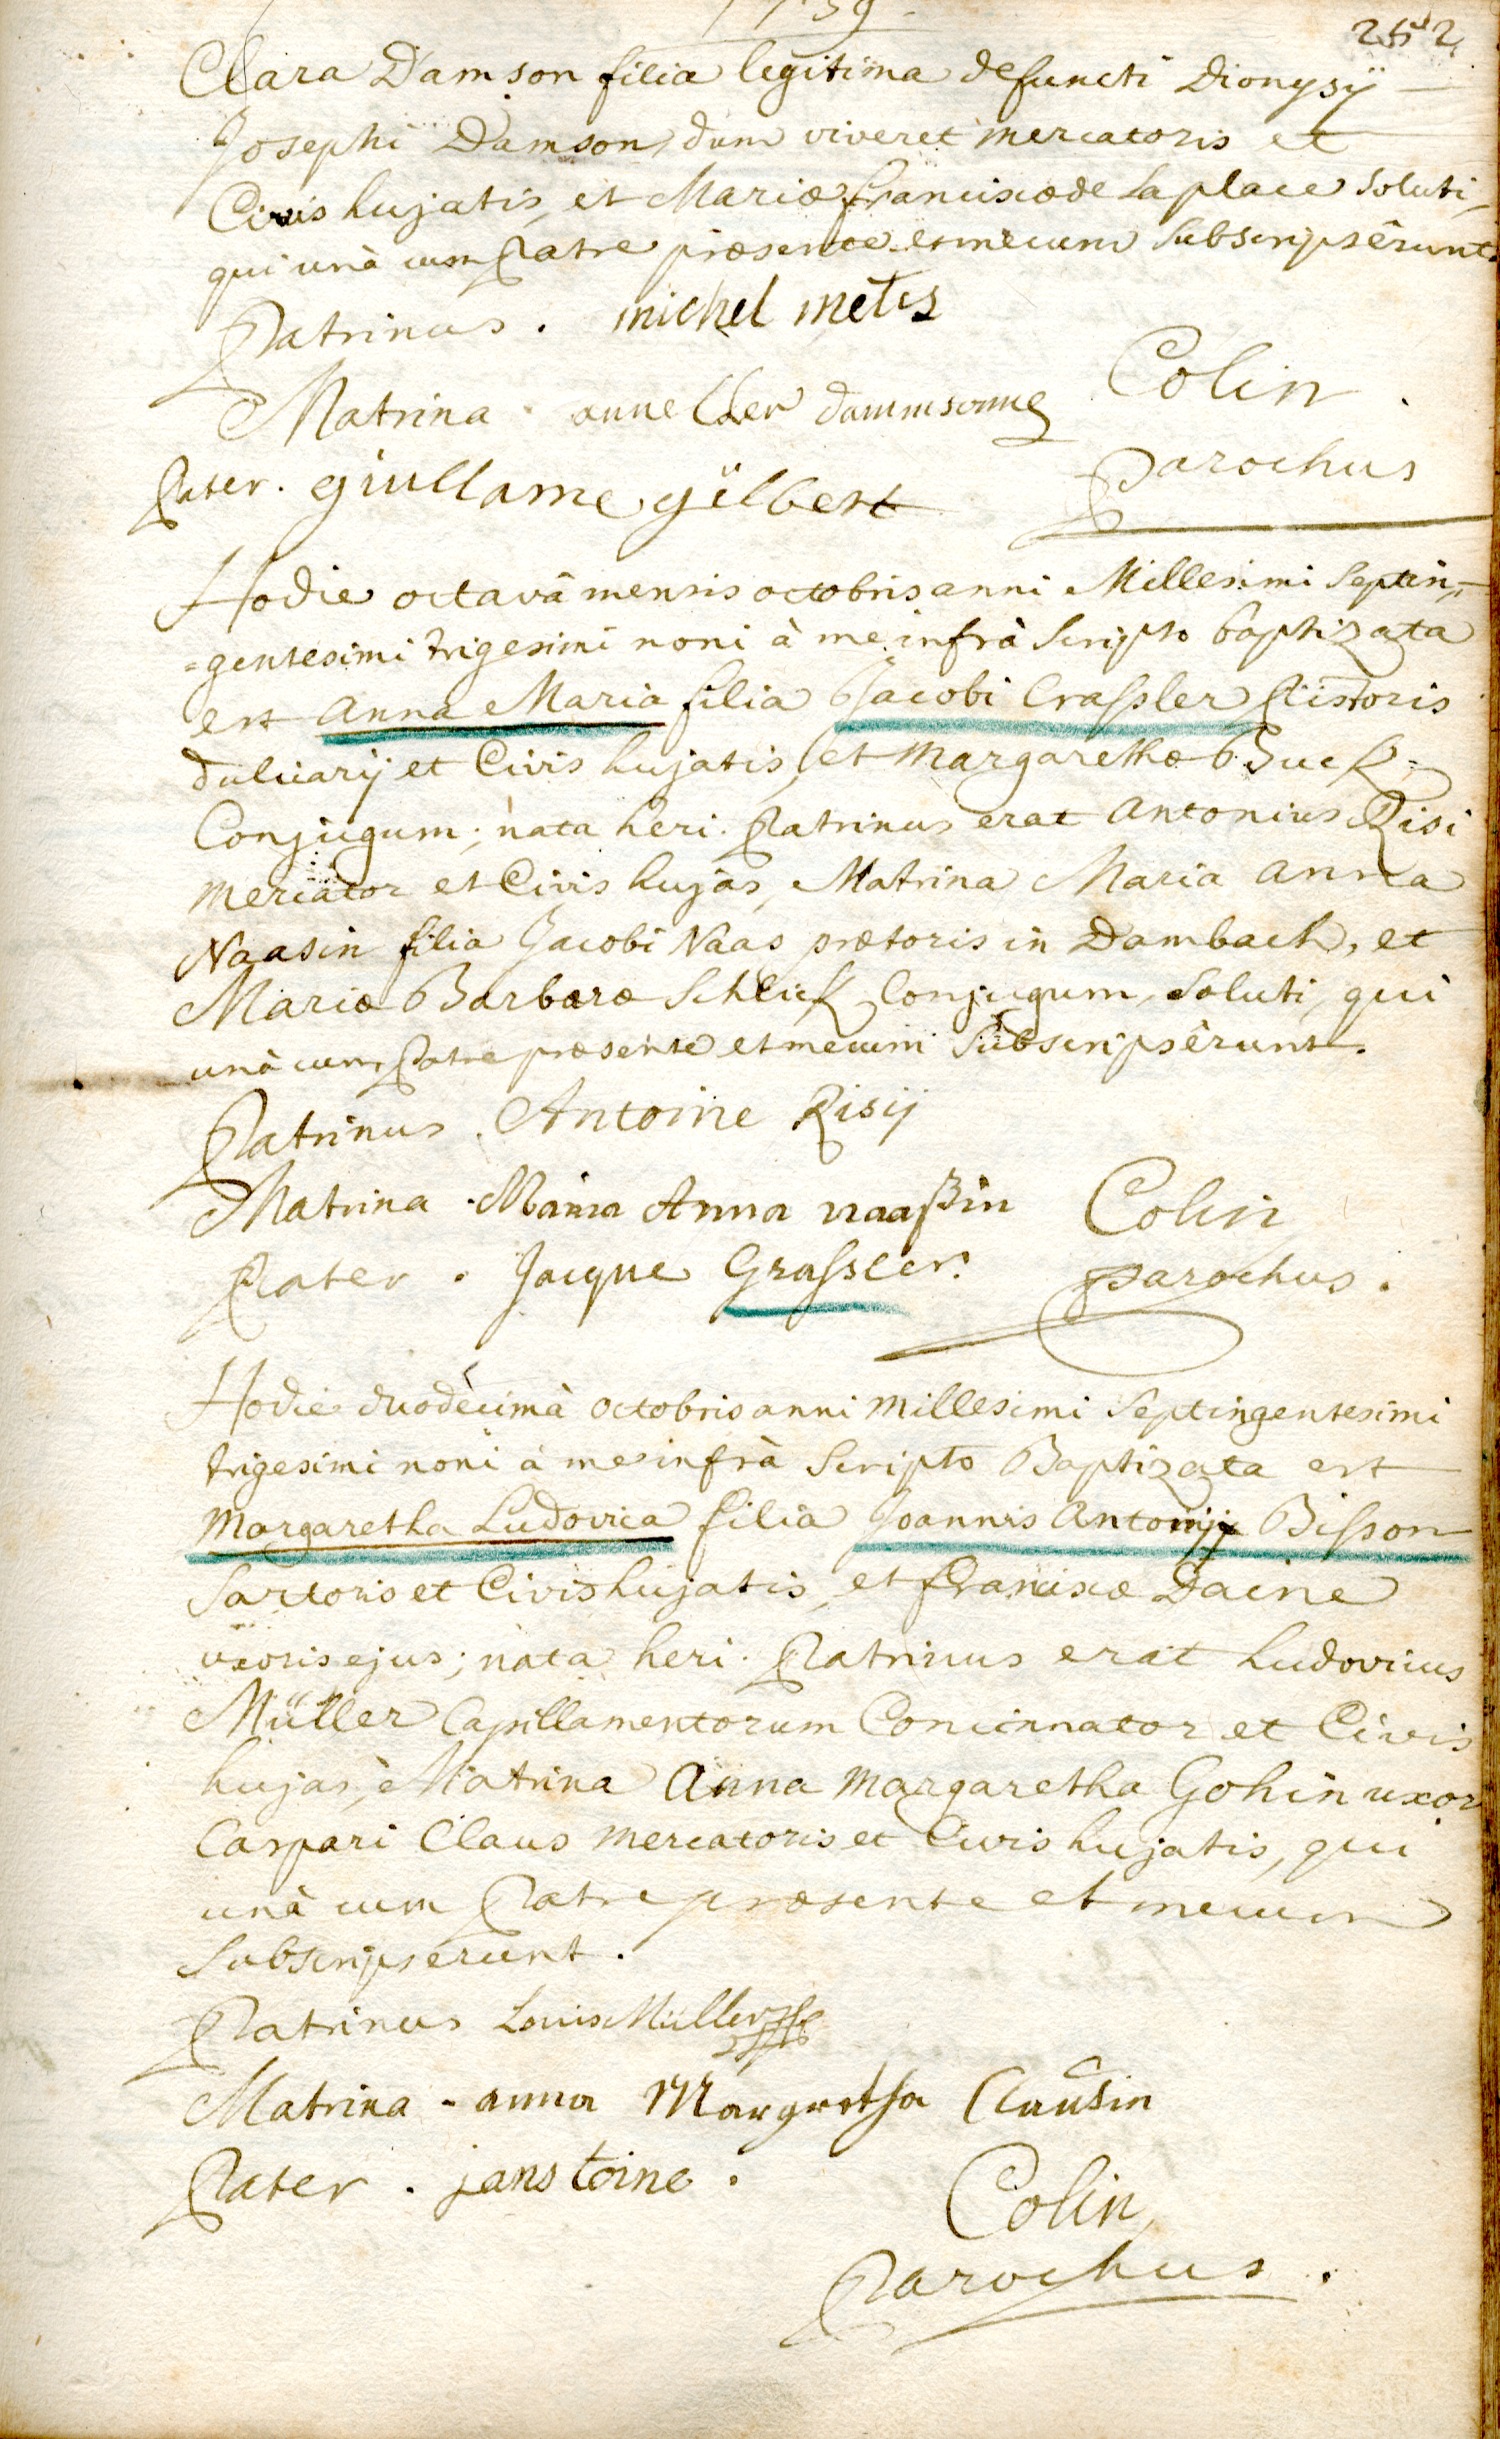 1739
252
Clara Damson filia legitima defuncti Dionysÿ
Josephi Damson, dum viveret mercatoris et
Civis hujatis, et Mariæ Franciscæ de la place soluti,
qui unà cum Patre præsente et mecum subscripsêrunt.
Patrinus. michel metis
Matrina anne Cler dammsonne
Colin
Parochus
Pater. giullame gilbert
Hodie octavâ mensis octobris anni Millesimi Septin-
=gentesimi trigesimi noni à me infrà scripto baptizata
est Anna Maria filia Jacobi Crassler Pistoris
dulciarij et Civis hujatis, et Margarethæ Buck
Conjugum; nata heri. Patrinus erat Antonius Risi
mercator et Civis hujas, Matrina Maria Anna
Naasin filia Jacobi Naas prætoris in Dambach, et
Mariæ Barbaræ Schück Conjugum, soluti, qui
unà cum Patre præsente et mecum subscripsêrunt.
Patrinus. Antoine Risij
Matrina. Maria Anna naaßin
Colin
Pater. Jacque Grassler.
parochus.
Hodie duodecimà octobris anni millesimi Septingentesimi
trigesimi noni à me infrà scripto Baptizata est
Margaretha Ludovica filia Joannis Antonij Bisson
Sartoris et Civis hujatis, et Franciscæ Daine
uxoris ejus; nata heri. Patrinus erat Ludovicus
Müller Capillamentorum Concinnator et Civis
hujas, Matrina Anna Margaretha Gohin uxor
Caspari Claus mercatoris et Civis hujatis, qui
unà cum Patre præsente et mecum
subscripserunt.
Patrinus Louis Müller
Matrina - anna Margretha Clausin
Pater. jans toine.
Colin
Parochus.